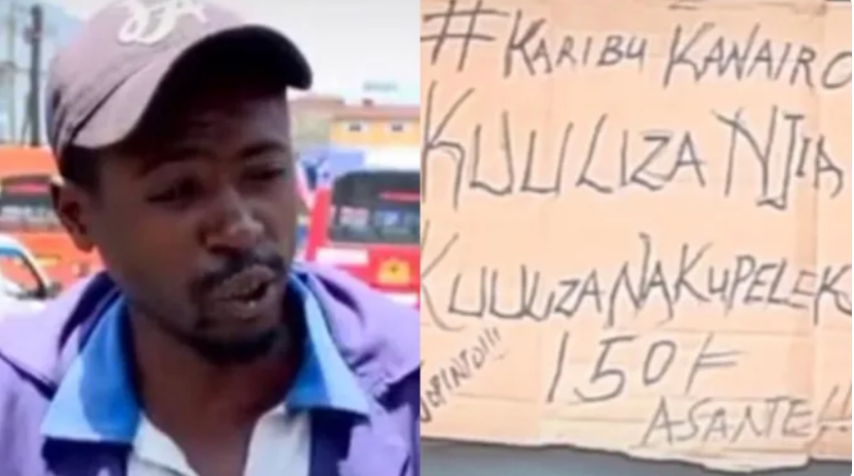 #KARIBU KANAIRO
KUULIZA NJIA
KUULIZA NA KUPELEK
150/=
ASANTE!!